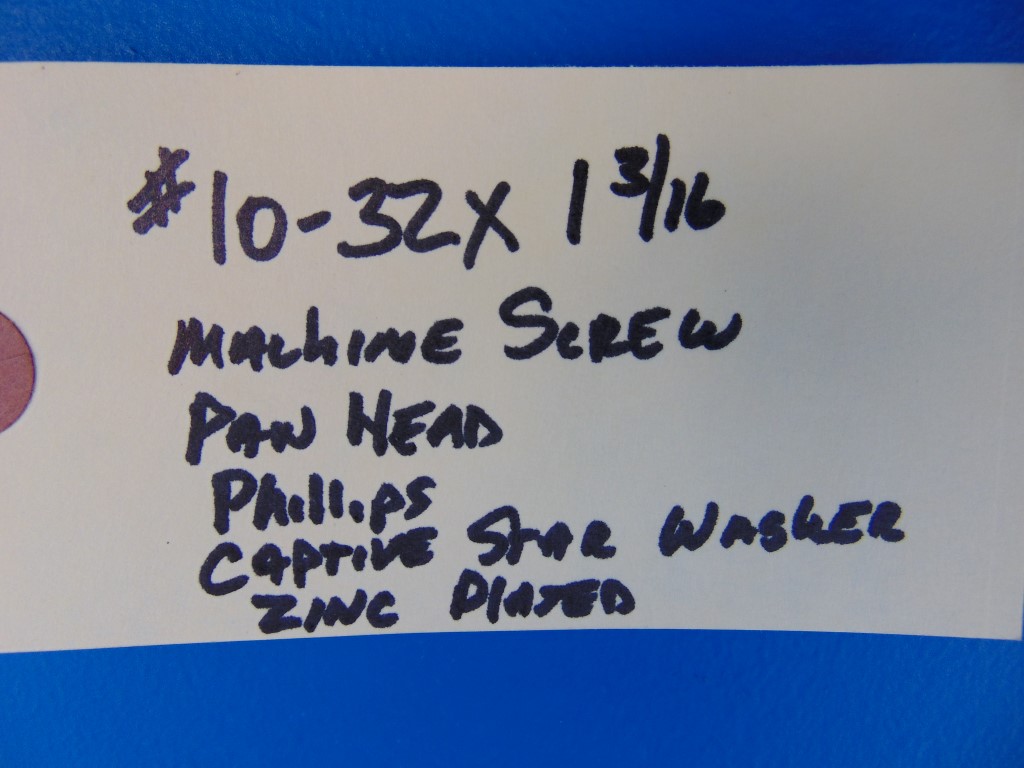 #10-32 X 1 3/16
MACHINE SCREW
PAN HEAD
Phillips
CAPTIVE STAR WASHER
ZINC PLATED